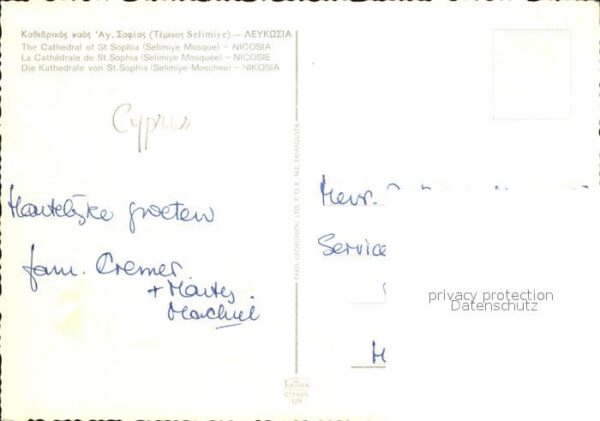 Καθεδρικός ναός Ἁγ. Σοφίας (Τέμενος Selimiye) – ΛΕΥΚΩΣΙΑ
The Cathedral of St. Sophia (Selimiye Mosque) – NICOSIA
La Cathédrale de St. Sophia (Selimiye Mosquée) – NICOSIE
Die Kathedrale von St. Sophia (Selimiye-Moschee) – NIKOSIA
Cyprus
Hartelijke groeten
fam. Cremer
+
Machiel
Mevr.
Service
privacy protection
Datenschutz
H
CYPRUS